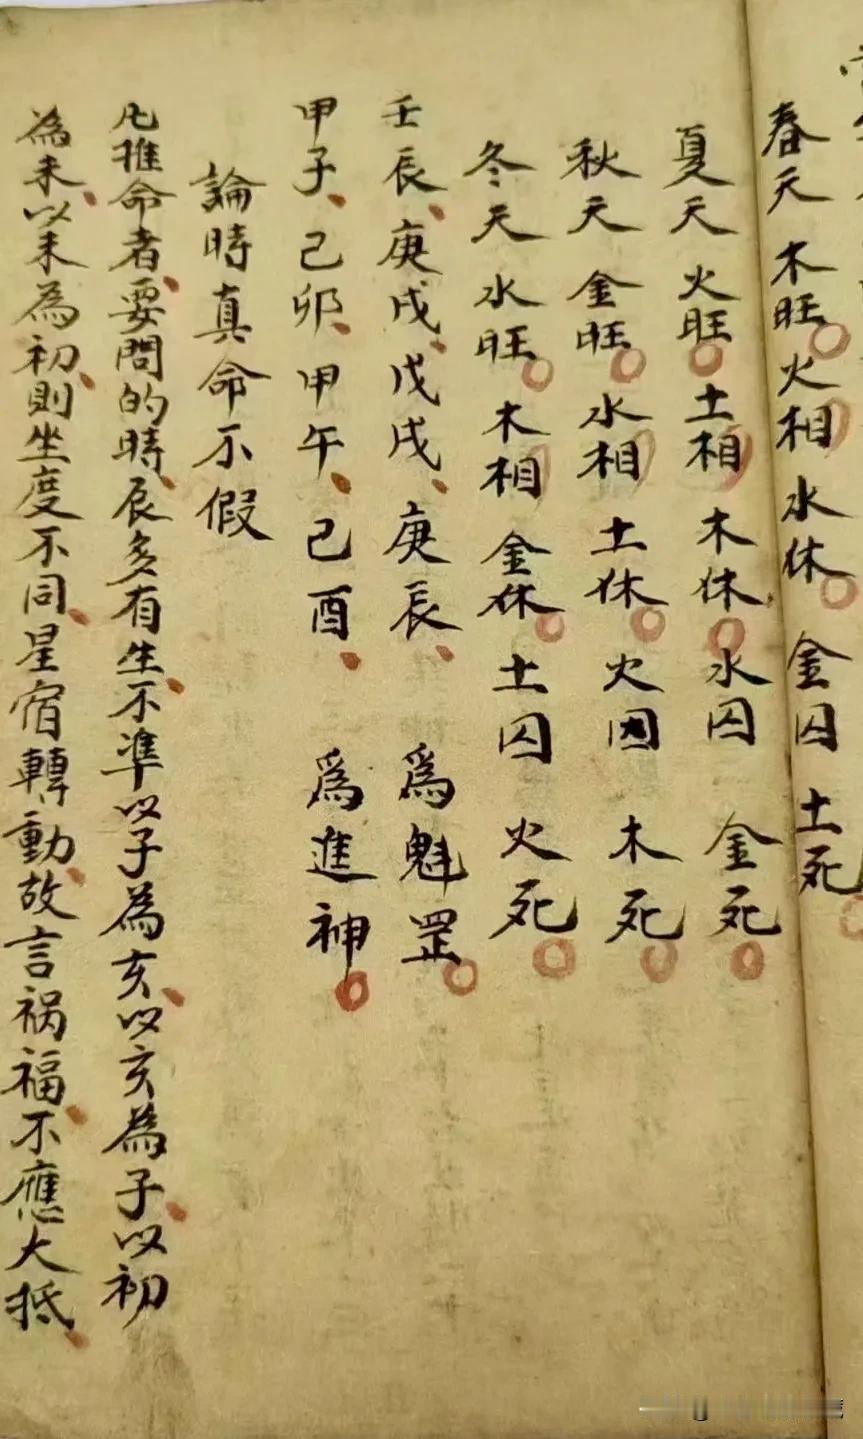 春天木旺火相水休金囚土死
夏天火旺土相木休水囚金死
秋天金旺水相土休火囚木死
冬天水旺木相金休土囚火死
壬辰、庚戌、戊戌、庚辰、為魁罡
甲子、己卯、甲午、己酉、為進神
論時真命不假
凡推命者、要問的時、辰多有生、不準以子為亥、以亥為子、以初
為末、以末為初、則坐度不同、星宿轉動、故言禍福、不應大抵、